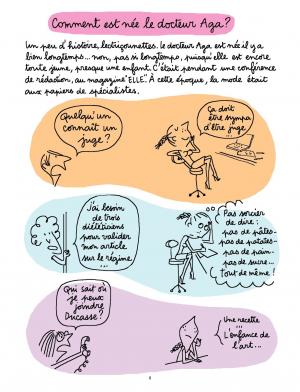 Comment est née le docteur Aga?
Un peu d'histoire, lectriçounettes. le docteur Aga est née il y a
bien longtemps... non, pas si longtemps, puisqu'elle est encore
toute jeune, presque une enfant. C'était pendant une conférence
de rédaction, au magazine "ELLE". À cette époque, la mode était
aux papiers de spécialistes.
Quelqu'un
connaît un
juge?
Ça doit
être sympa
d'être juge
J'ai besoin
de trois
diététiciens
pour valider
mon article
sur le régime
...
Pas sorcier
de dire:
pas de pâtes-
pas de patates-
pas de pain-
pas de sucre...
tout de même!
Qui sait où
je peux
joindre
Ducasse?
Une recette
...
L'enfance de
l'art...